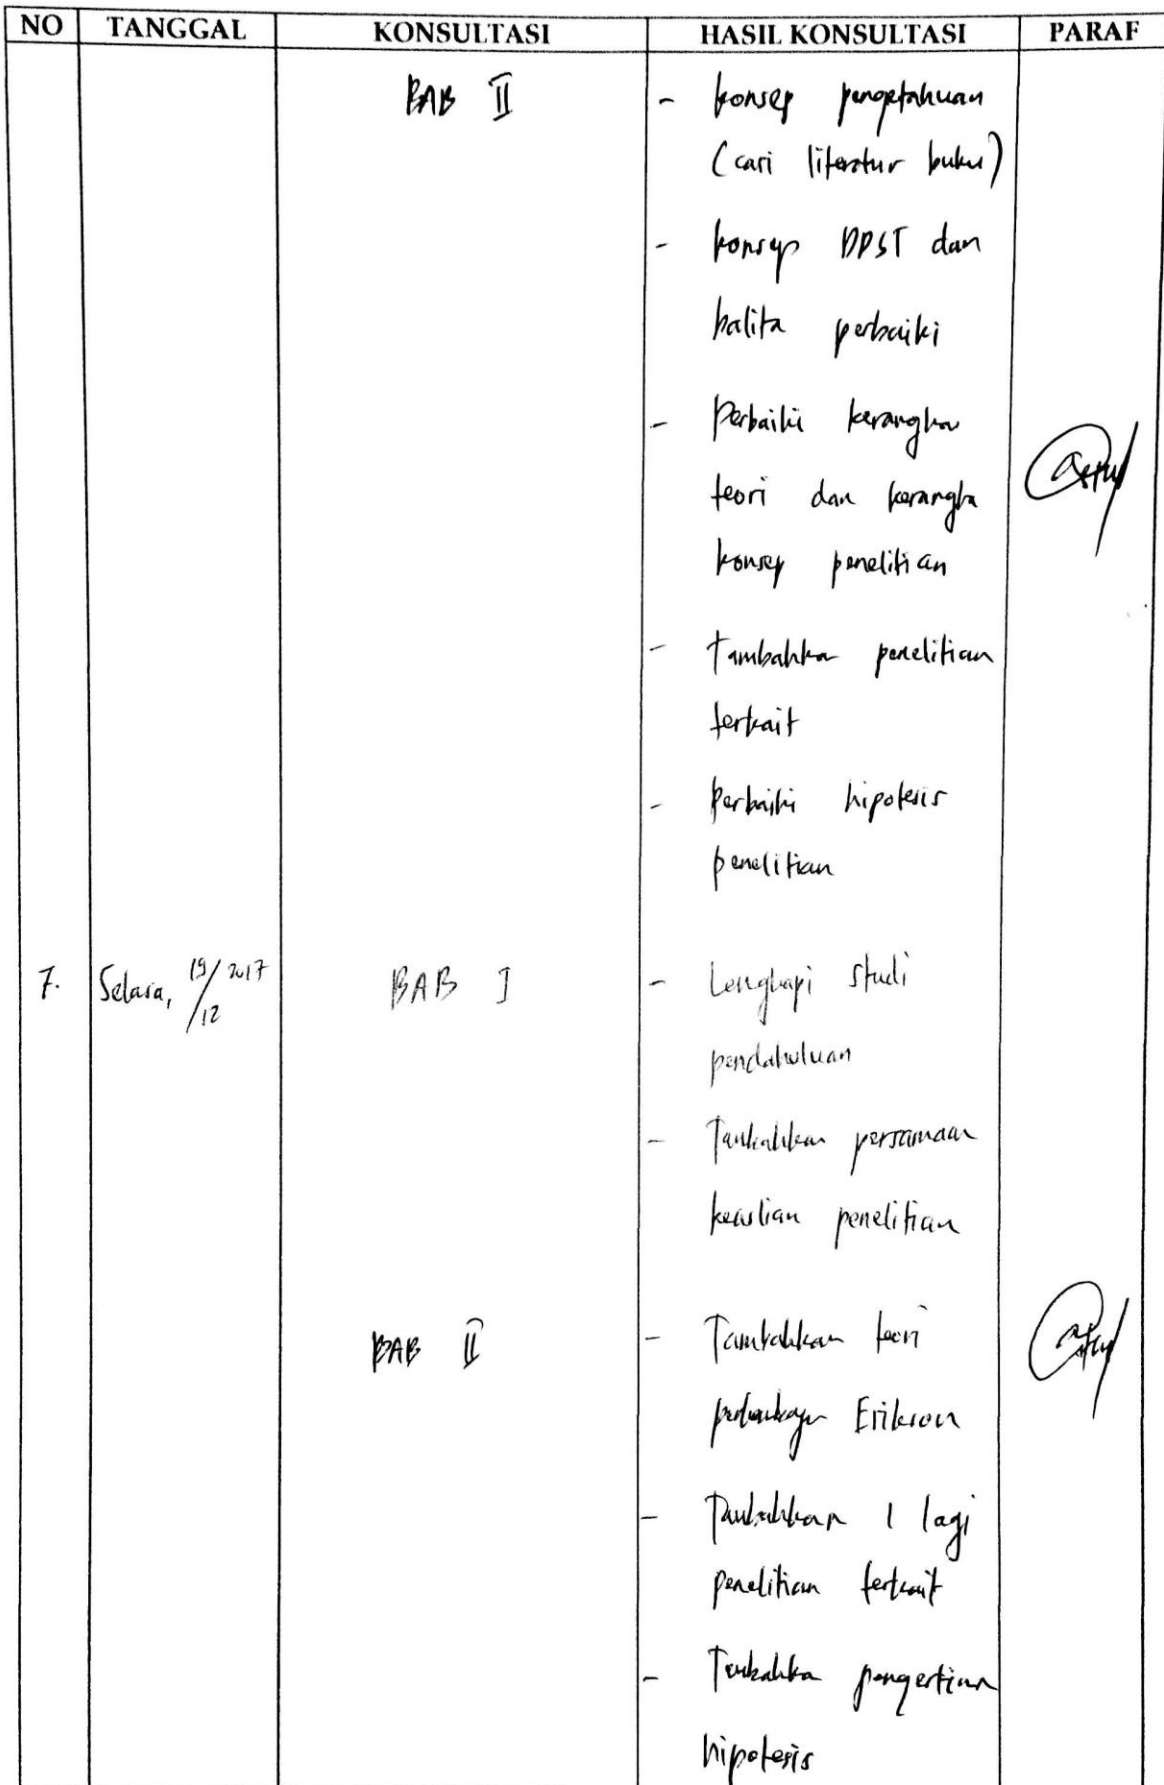 NO TANGGAL KONSULTASI HASIL KONSULTASI PARAF
BAB II - konsep pengetahuan
(cari literatur buku)
- konsep DDST dan
balita perbaiki
- Perbaiki kerangka
teori dan kerangka
konsep penelitian
- Tambahkan penelitian
terkait
- Perbaiki hipotesis
penelitian
7. Selasa, 19/12 2017 BAB I - Lengkapi studi
pendahuluan
- Tambahkan persamaan
keaslian penelitian
BAB II - Tambahkan teori
Erikson
- Tambahkan 1 lagi
penelitian terkait
- Tambahka pengertian
hipotesis